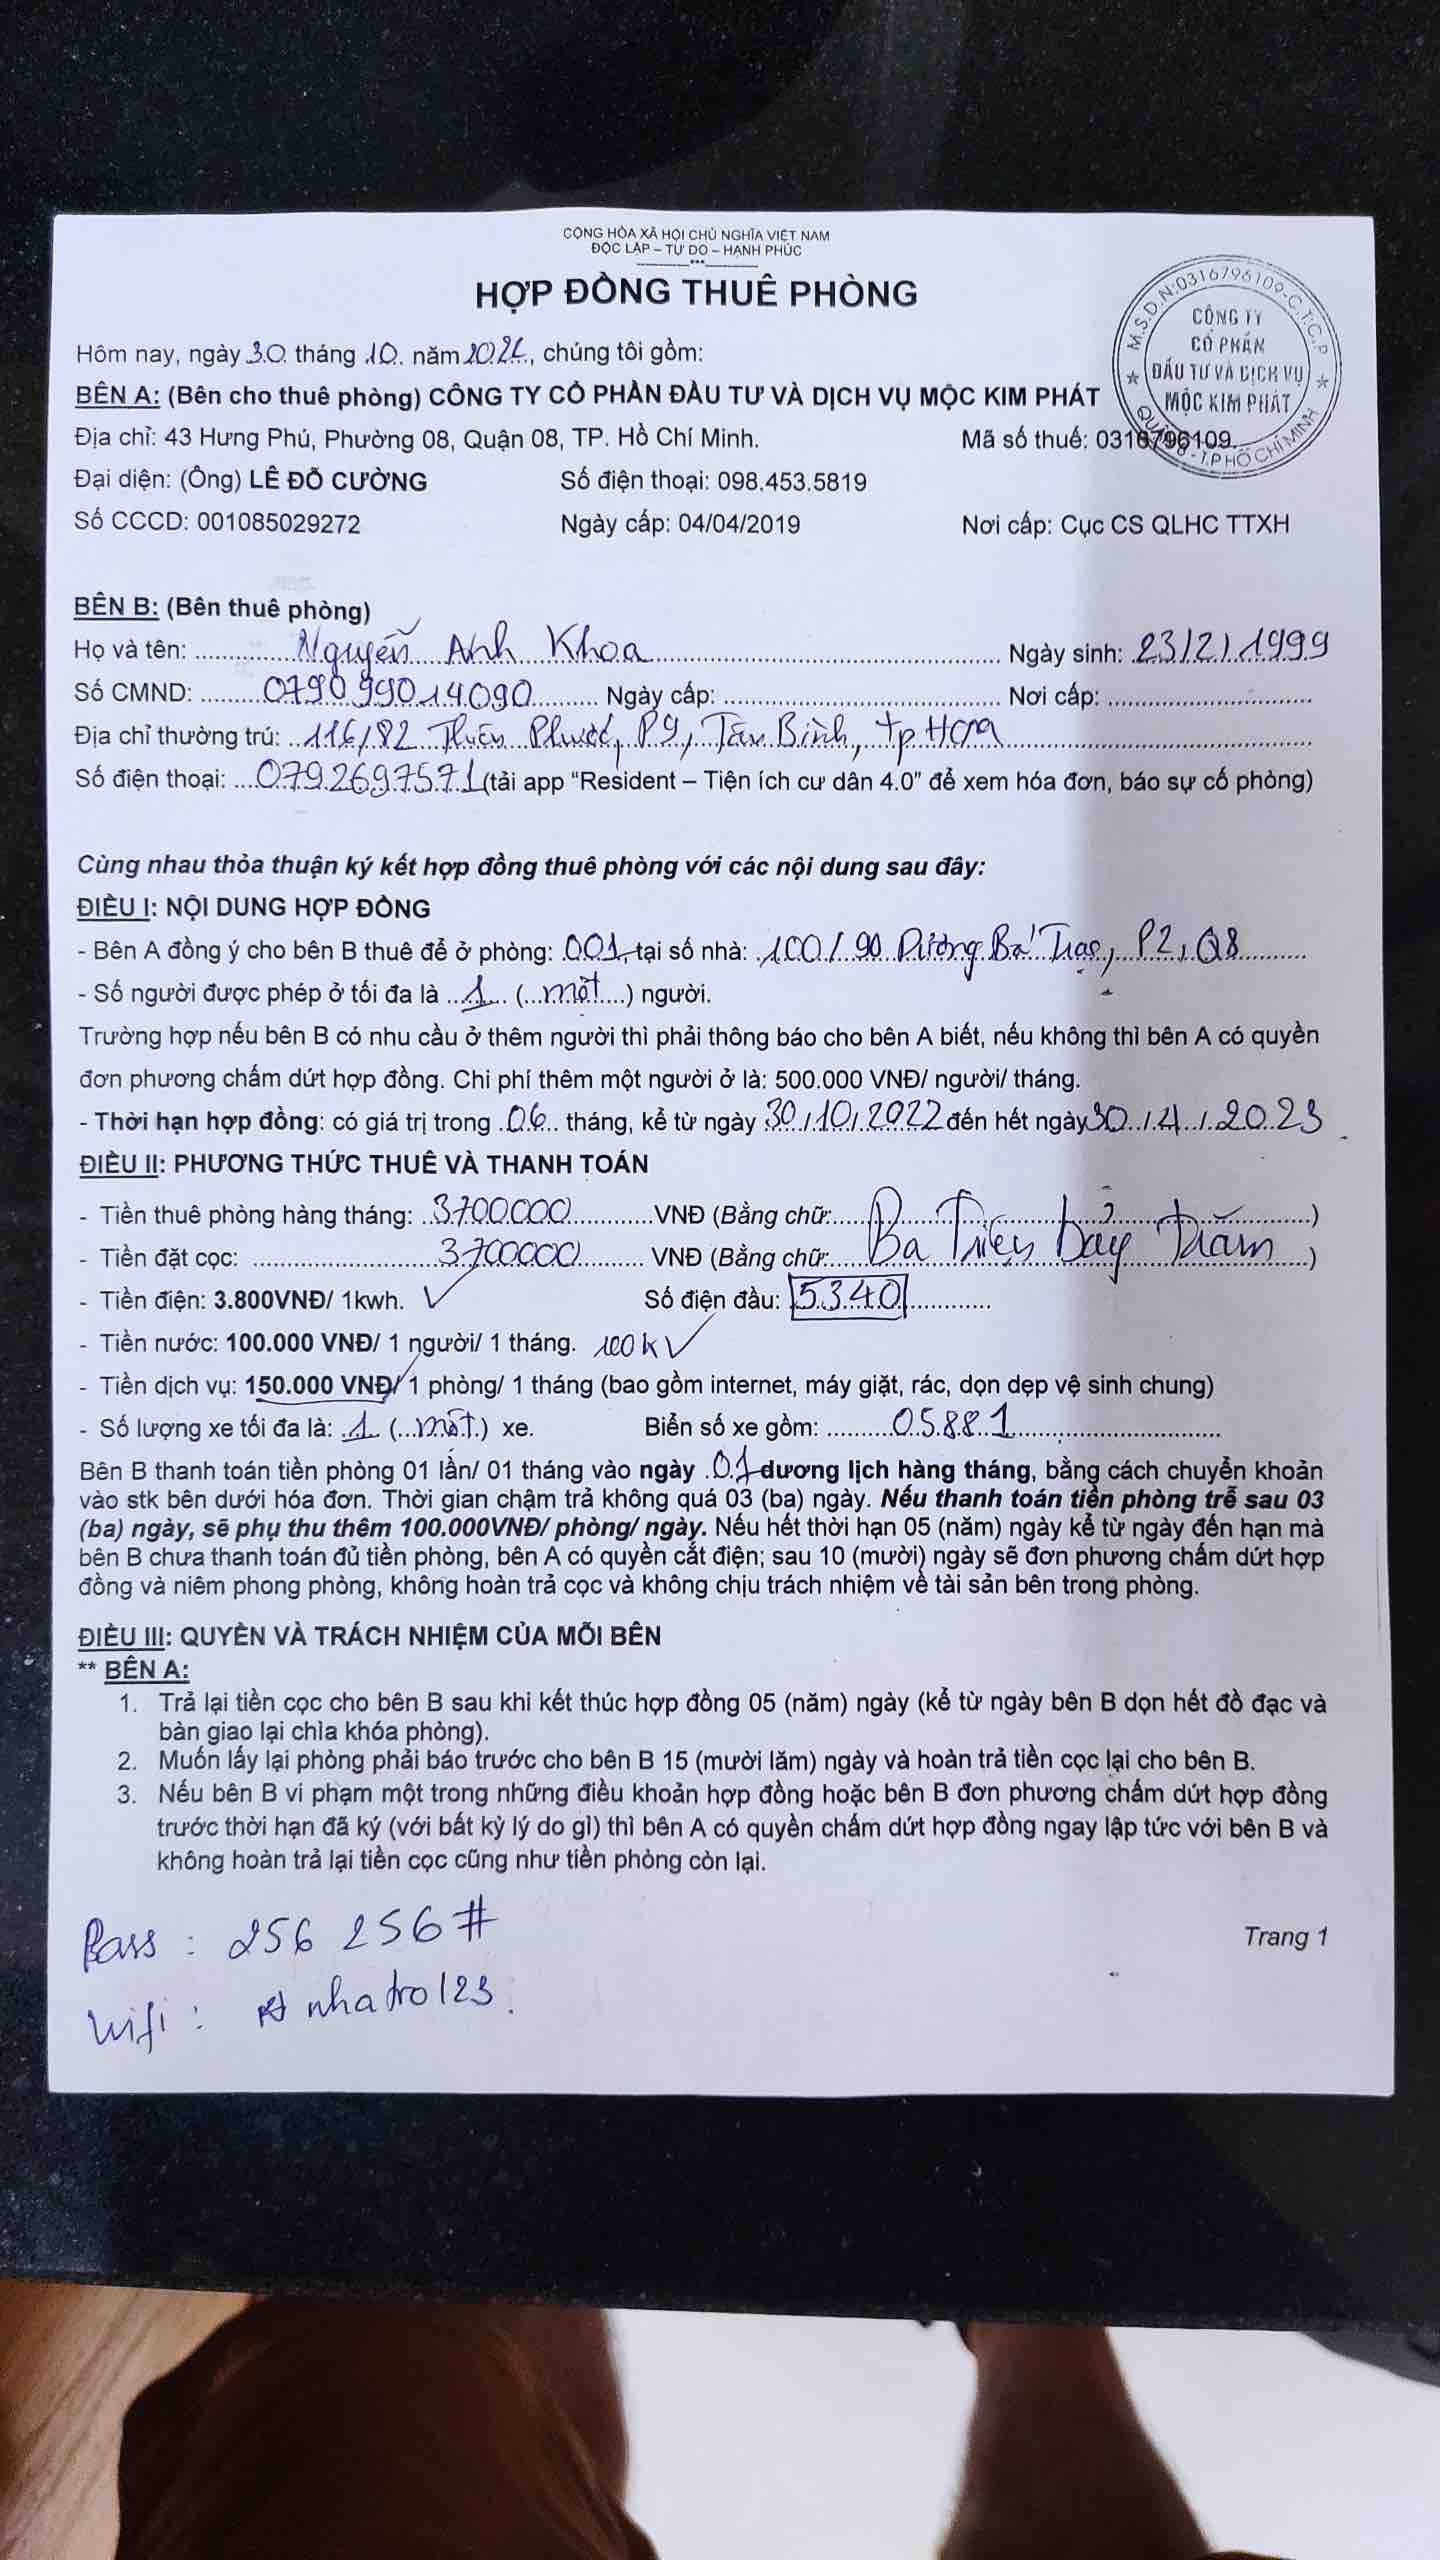 CỘNG HÒA XÃ HỘI CHỦ NGHĨA VIỆT NAM
ĐỘC LẬP – TỰ DO – HẠNH PHÚC
HỢP ĐỒNG THUÊ PHÒNG
M.S.D.N:0316796109-C.T.C.P
CÔNG TY
CỔ PHẦN
ĐẦU TƯ VÀ DỊCH VỤ
MỘC KIM PHÁT
QUẬN 8 - T.P HỒ CHÍ MINH
Hôm nay, ngày 30 tháng 10 năm 2022, chúng tôi gồm:
BÊN A: (Bên cho thuê phòng) CÔNG TY CỔ PHẦN ĐẦU TƯ VÀ DỊCH VỤ MỘC KIM PHÁT
Địa chỉ: 43 Hưng Phú, Phường 08, Quận 08, TP. Hồ Chí Minh. Mã số thuế: 0316796109
Đại diện: (Ông) LÊ ĐỖ CƯỜNG Số điện thoại: 098.453.5819
Số CCCD: 001085029272 Ngày cấp: 04/04/2019 Nơi cấp: Cục CS QLHC TTXH
BÊN B: (Bên thuê phòng)
Họ và tên: Nguyễn Anh Khoa Ngày sinh: 23/2/1999
Số CMND: 079099014090 Ngày cấp: Nơi cấp:
Địa chỉ thường trú: 116/82 Thiên Phước, P9, Tân Bình, tp Hcm
Số điện thoại: 0792697571 (tải app “Resident – Tiện ích cư dân 4.0” để xem hóa đơn, báo sự cố phòng)
Cùng nhau thỏa thuận ký kết hợp đồng thuê phòng với các nội dung sau đây:
ĐIỀU I: NỘI DUNG HỢP ĐỒNG
- Bên A đồng ý cho bên B thuê để ở phòng: 001, tại số nhà: 100/90 Dương Bá Trạc, P2, Q8
- Số người được phép ở tối đa là 1 (một) người.
Trường hợp nếu bên B có nhu cầu ở thêm người thì phải thông báo cho bên A biết, nếu không thì bên A có quyền
đơn phương chấm dứt hợp đồng. Chi phí thêm một người ở là: 500.000 VNĐ/ người/ tháng.
- Thời hạn hợp đồng: có giá trị trong 06 tháng, kể từ ngày 30/10/2022 đến hết ngày 30/4/2023
ĐIỀU II: PHƯƠNG THỨC THUÊ VÀ THANH TOÁN
- Tiền thuê phòng hàng tháng: 3700000 VNĐ (Bằng chữ: )
- Tiền đặt cọc: 3700000 VNĐ (Bằng chữ: Ba Triệu bảy Trăm )
- Tiền điện: 3.800VNĐ/ 1kwh. ✓ Số điện đầu: 5340
- Tiền nước: 100.000 VNĐ/ 1 người/ 1 tháng. 100k ✓
- Tiền dịch vụ: 150.000 VNĐ/ 1 phòng/ 1 tháng (bao gồm internet, máy giặt, rác, dọn dẹp vệ sinh chung)
- Số lượng xe tối đa là: 1 (một) xe. Biển số xe gồm: 05881
Bên B thanh toán tiền phòng 01 lần/ 01 tháng vào ngày 01 dương lịch hàng tháng, bằng cách chuyển khoản
vào stk bên dưới hóa đơn. Thời gian chậm trả không quá 03 (ba) ngày. Nếu thanh toán tiền phòng trễ sau 03
(ba) ngày, sẽ phụ thu thêm 100.000VNĐ/ phòng/ ngày. Nếu hết thời hạn 05 (năm) ngày kể từ ngày đến hạn mà
bên B chưa thanh toán đủ tiền phòng, bên A có quyền cắt điện; sau 10 (mười) ngày sẽ đơn phương chấm dứt hợp
đồng và niêm phong phòng, không hoàn trả cọc và không chịu trách nhiệm về tài sản bên trong phòng.
ĐIỀU III: QUYỀN VÀ TRÁCH NHIỆM CỦA MỖI BÊN
** BÊN A:
1. Trả lại tiền cọc cho bên B sau khi kết thúc hợp đồng 05 (năm) ngày (kể từ ngày bên B dọn hết đồ đạc và
bàn giao lại chìa khóa phòng).
2. Muốn lấy lại phòng phải báo trước cho bên B 15 (mười lăm) ngày và hoàn trả tiền cọc lại cho bên B.
3. Nếu bên B vi phạm một trong những điều khoản hợp đồng hoặc bên B đơn phương chấm dứt hợp đồng
trước thời hạn đã ký (với bất kỳ lý do gì) thì bên A có quyền chấm dứt hợp đồng ngay lập tức với bên B và
không hoàn trả lại tiền cọc cũng như tiền phòng còn lại.
Pass : 256 256#
Trang 1
Wifi : nhatro123.